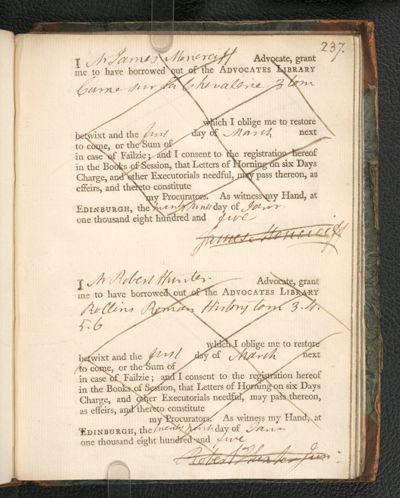 237.
I Mr James Moncreiff Advocate, grant
me to have borrowed out of the ADVOCATES LIBRARY
Curne sur la Chevalerie 3 tom
which I oblige me to restore
betwixt and the first day of March next
to come, or the Sum of
in case of Failzie; and I consent to the registration hereof
in the Books of Session, that Letters of Horning on six Days
Charge, and other Executorials needful, may pass thereon, as
effeirs, and thereto constitute
my Procurators. As witness my Hand, at
EDINBURGH, the day of Janr
one thousand eight hundred and five
James Moncreiff
I Mr Robert Hunter Advocate, grant
me to have borrowed out of the ADVOCATES LIBRARY
Rollins Roman History tom 3. 4.
5. 6
which I oblige me to restore
betwixt and the first day of March next
to come, or the Sum of
in case of Failzie; and I consent to the registration hereof
in the Books of Session, that Letters of Horning on six Days
Charge, and other Executorials needful, may pass thereon,
as effeirs, and thereto constitute
my Procurators. As witness my Hand, at
EDINBURGH, the day of Janr
one thousand eight hundred and five
Robert Hunter